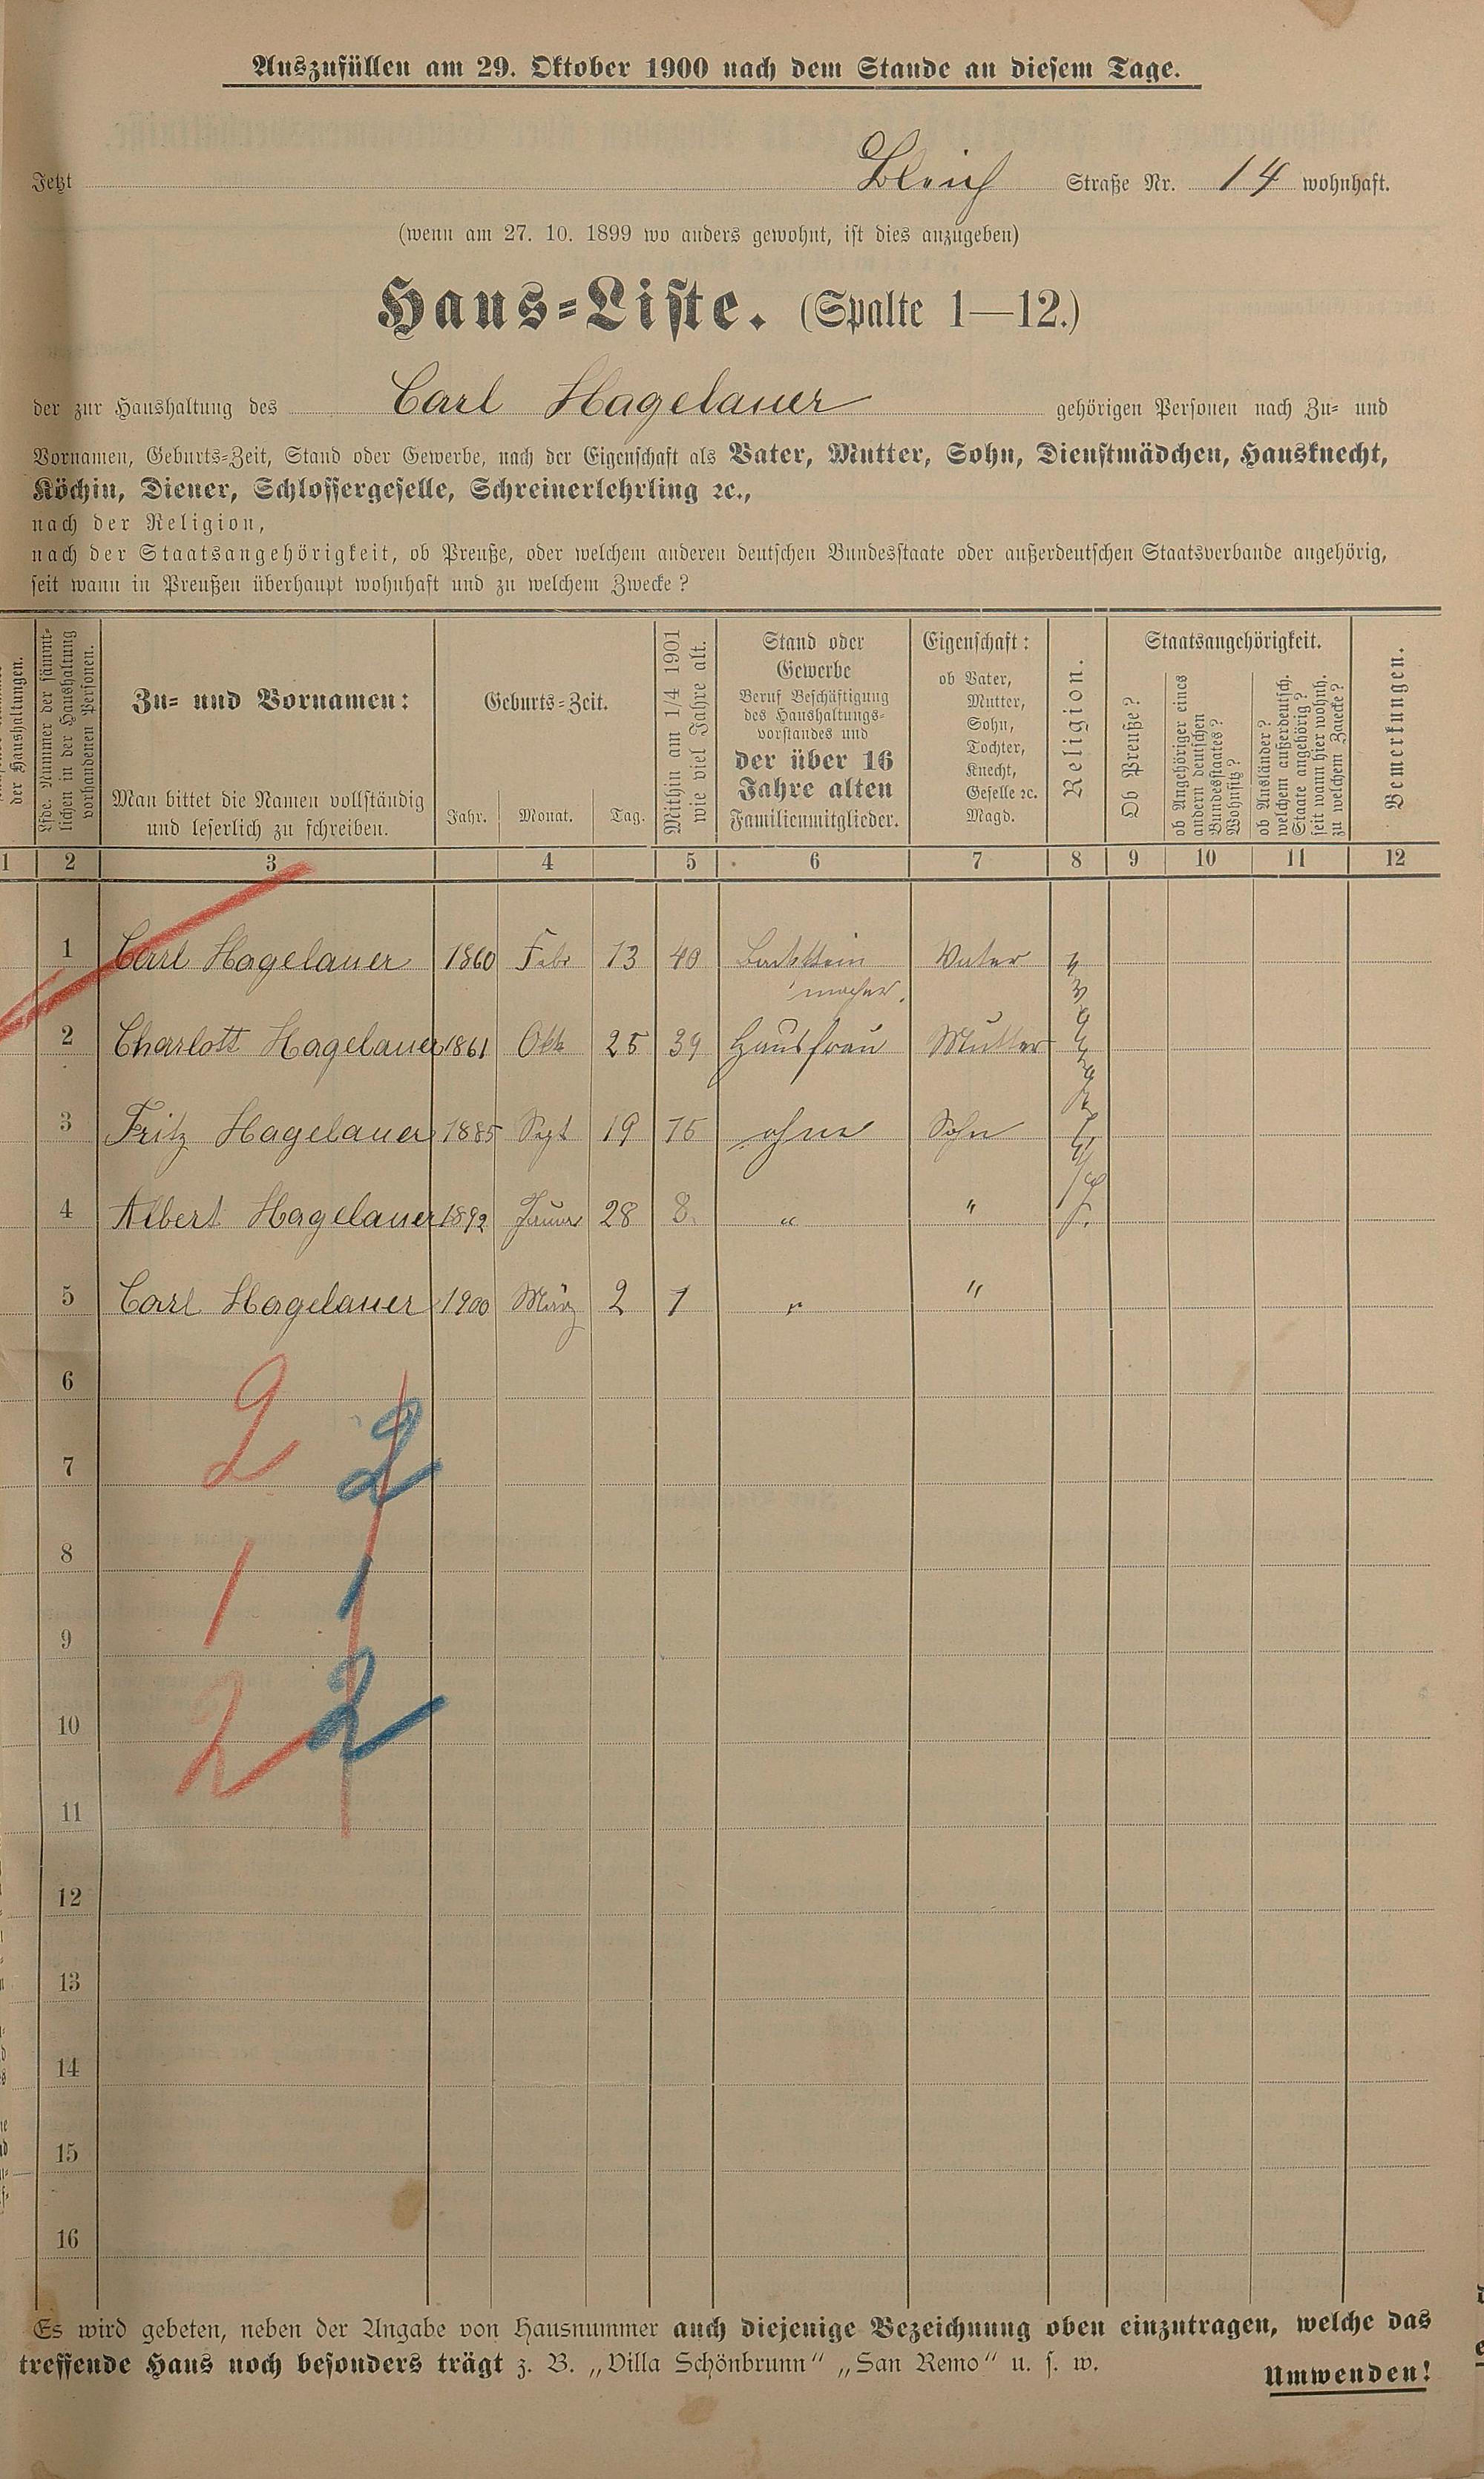 Auszufüllen am 29. Oktober 1900 nach dem Stande an diesem Tage.
Jetzt Bleich Straße Nr. 14 wohnhaft.
(wenn am 27. 10. 1899 wo anders gewohnt, ist dies anzugeben)
Haus=Liste. (Spalte 1—12.)
der zur Haushaltung des Carl Hagelauer gehörigen Personen nach Zu= und
Vornamen, Geburts=Zeit, Stand oder Gewerbe, nach der Eigenschaft als Vater, Mutter, Sohn, Dienstmädchen, Hausknecht,
Köchin, Diener, Schlossergeselle, Schreinerlehrling ꝛc.,
nach der Religion,
nach der Staatsangehörigkeit, ob Preuße, oder welchem anderen deutschen Bundesstaate oder außerdeutschen Staatsverbande angehörig,
seit wann in Preußen überhaupt wohnhaft und zu welchem Zwecke?
der Haushaltungen.
Lfde. Nummer der sämmt=
lichen in der Haushaltung
vorhandenen Personen.
Zu= und Vornamen:
Man bittet die Namen vollständig
und leserlich zu schreiben.
Geburts=Zeit.
Jahr. Monat. Tag.
Mithin am 1/4 1901
wie viel Jahre alt.
Stand oder
Gewerbe
Beruf Beschäftigung
des Haushaltungs=
vorstandes und
der über 16
Jahre alten
Familienmitglieder.
Eigenschaft:
ob Vater,
Mutter,
Sohn,
Tochter,
Knecht,
Geselle ꝛc.
Magd.
Religion.
Staatsangehörigkeit.
Ob Preuße?
ob Angehöriger eines
andern deutschen
Bundesstaates?
Wohnsitz?
ob Ausländer?
welchem außerdeutsch.
Staate angehörig?
seit wann hier wohnh.
zu welchem Zwecke?
Bemerkungen.
1 2 3 4 5 6 7 8 9 10 11 12
1 Carl Hagelauer 1860 Febr 13 40 Backstein Vater
macher.
2 Charlott Hagelauer 1861 Okt 25 39 Hausfrau Mutter
3 Fritz Hagelauer 1885 Sept 19 15 ohne Sohn
4 Albert Hagelauer 1892 Januar 28 8. " "
5 Carl Hagelauer 1900 März 2 1 " "
6
2 2
7
8
1 1
9
2 2
10
11
12
13
14
15
16
Es wird gebeten, neben der Angabe von Hausnummer auch diejenige Bezeichnung oben einzutragen, welche das
treffende Haus noch besonders trägt z. B. „Villa Schönbrunn“ „San Remo“ u. s. w.
Umwenden!